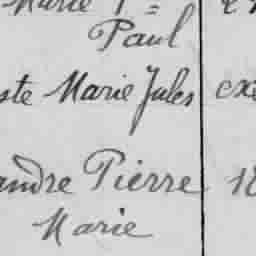 Marie
Paul
ste Marie Jules
andre Pierre 18
Marie